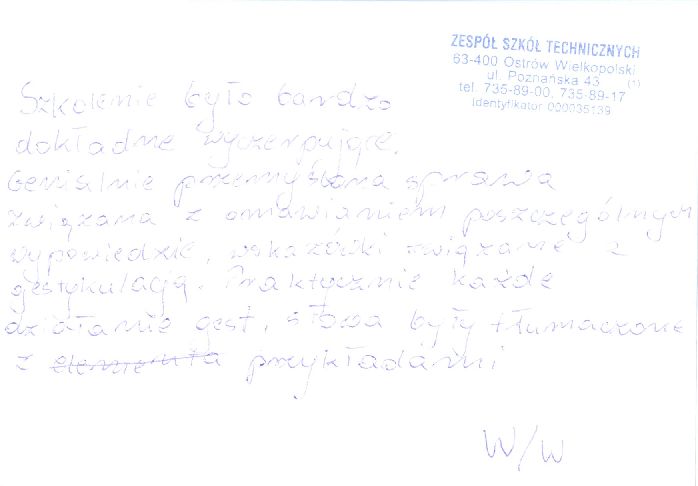 ZESPÓŁ SZKÓŁ TECHNICZNYCH
63-400 Ostrów Wielkopolski
ul. Poznańska 43 (1)
tel. 735-89-00, 735-89-17
Identyfikator 000035139
Szkolenie było bardzo
dokładne wyczerpujące.
Genialnie przemyślana sprawa
związana z omawianiem poszczególnych
wypowiedzie, wskazówki związane z
gestykulacją. Praktycznie każde
działanie gest, słowa były tłumaczone
z przykładami
W/W